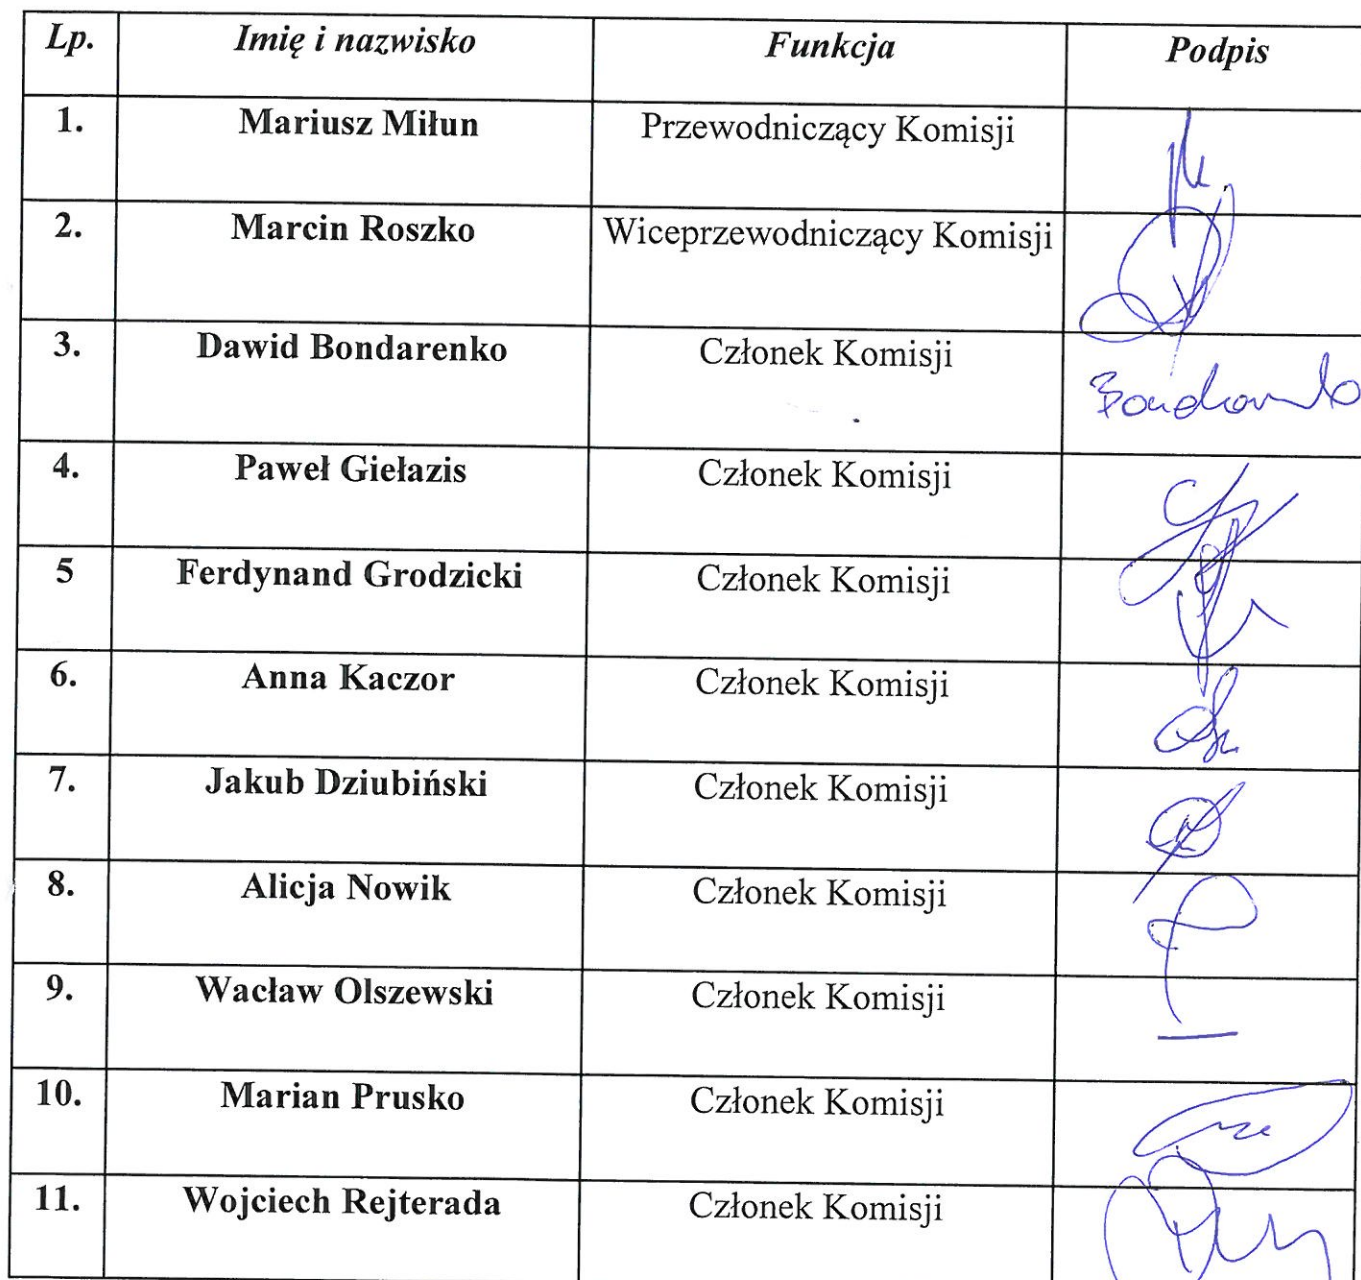 Lp. Imię i nazwisko Funkcja Podpis
1. Mariusz Miłun Przewodniczący Komisji
2. Marcin Roszko Wiceprzewodniczący Komisji
3. Dawid Bondarenko Członek Komisji
4. Paweł Giełazis Członek Komisji
5 Ferdynand Grodzicki Członek Komisji
6. Anna Kaczor Członek Komisji
7. Jakub Dziubiński Członek Komisji
8. Alicja Nowik Członek Komisji
9. Wacław Olszewski Członek Komisji
10. Marian Prusko Członek Komisji
11. Wojciech Rejterada Członek Komisji